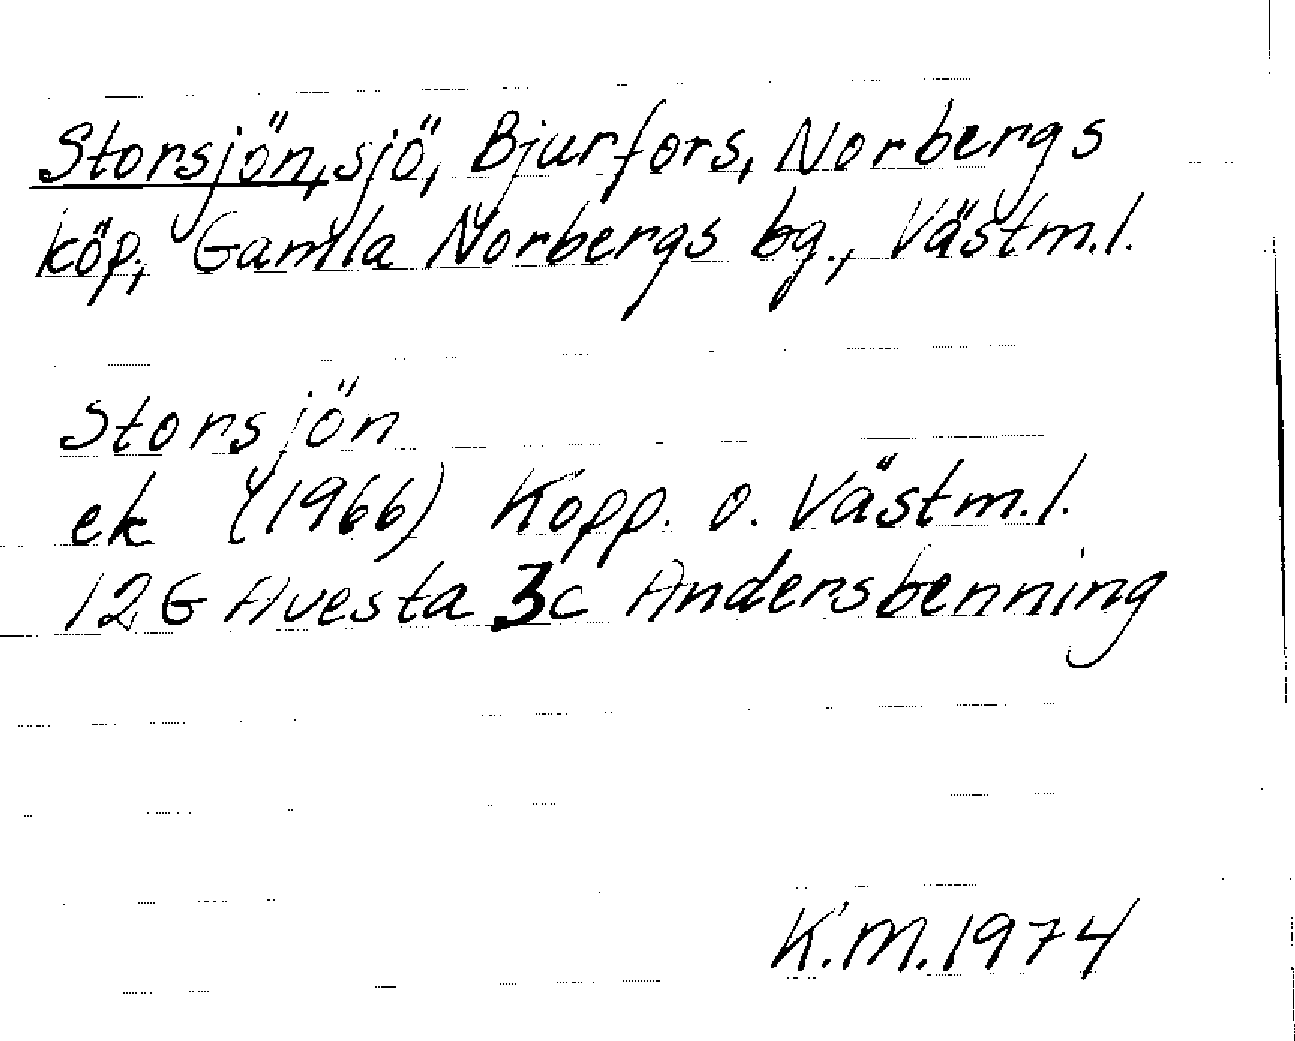 Storsjön, sjö, Bjurfors, Norbergs
köp, Gamla Norbergs bg., Västm.l.
Storsjön
ek (1966) Kopp. o. Västm.l.
12G Avesta 3c Andersbenning
K.M.1974